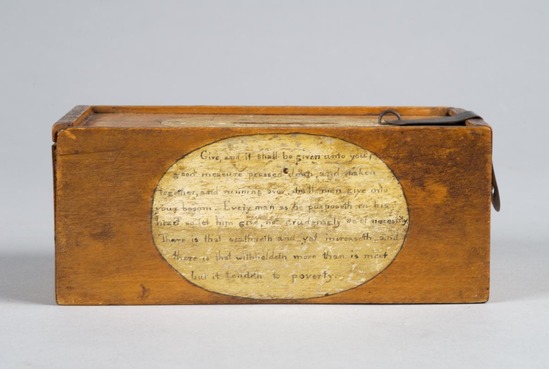 Give, and it shall be given unto you,
good measure pressed down, and shaken
together, and running over, shall men give into
your bosom. Every man as he purposeth in his
heart so let him give, not grudgingly or of necessity
There is that scattereth and yet increaseth, and
there is that withholdeth more than is meet
but it tendeth to poverty.